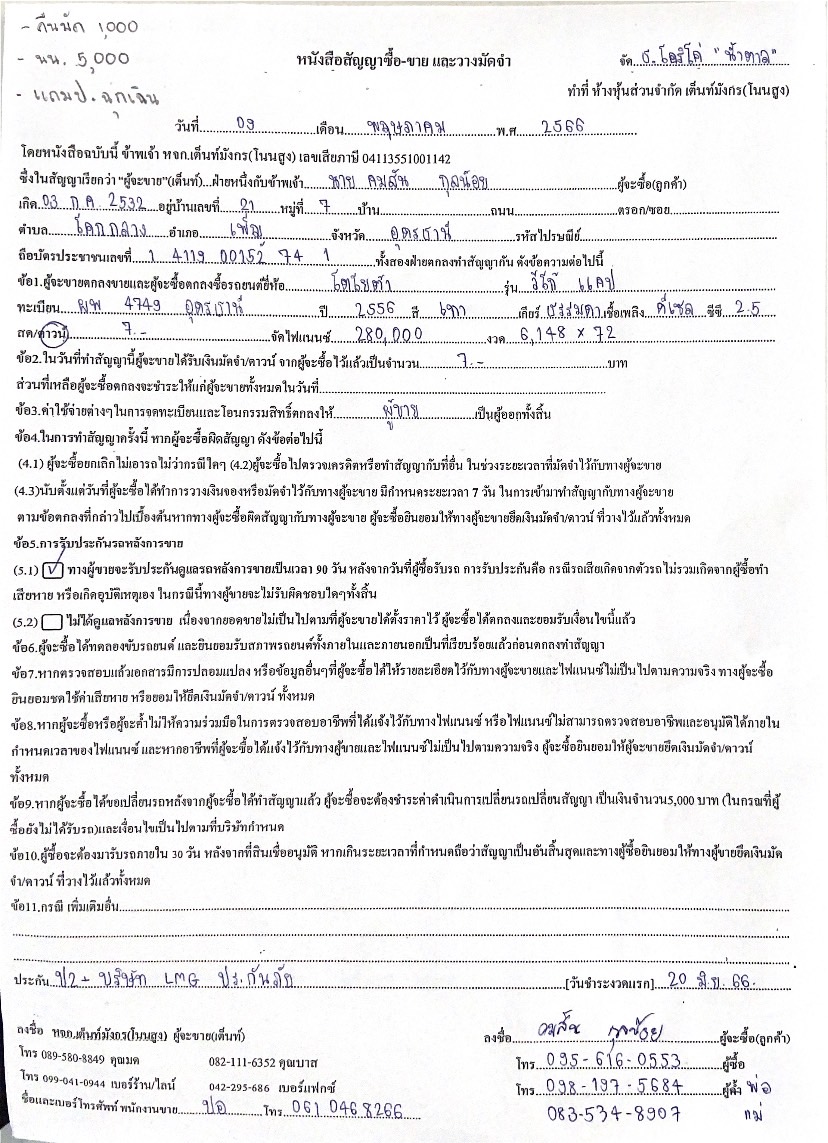 - คืนนัด 1,000
- นน. 5,000
- แถมป. ฉุกเฉิน
หนังสือสัญญาซื้อ-ขาย และวางมัดจำ
จัด ธ. โตริโค่ "น้ำตาล"
ทำที่ ห้างหุ้นส่วนจำกัด เต็นท์มังกร(โนนสูง)
วันที่ 09 เดือน พฤษภาคม พ.ศ 2566
โดยหนังสือฉบับนี้ ข้าพเจ้า หจก.เต็นท์มังกร(โนนสูง) เลขเสียภาษี 04113551001142
ซึ่งในสัญญาเรียกว่า "ผู้จะขาย"(เต็นท์)...ฝ่ายหนึ่งกับข้าพเจ้า นาย คมสัน กุลน้อย ผู้จะซื้อ(ลูกค้า)
เกิด 03 ก.ค. 2532 อยู่บ้านเลขที่ 21 หมู่ที่ 7 บ้าน ถนน ตรอก/ซอย
ตำบล โคกกลาง อำเภอ เพ็ญ จังหวัด อุดรธานี รหัสไปรษณีย์
ถือบัตรประชาชนเลขที่ 1 4119 00152 74 1 ทั้งสองฝ่ายตกลงทำสัญญากัน ดังข้อความต่อไปนี้
ข้อ1.ผู้จะขายตกลงขายและผู้จะซื้อตกลงซื้อรถยนต์ยี่ห้อ โตโยต้า รุ่น วีโก้ แคป
ทะเบียน ผพ 4749 อุดรธานี ปี 2556 สี เทา เกียร์ ธรรมดา เชื้อเพลิง ดีเซล ซีซี 2.5
สด/ดาวน์ 7.- จัดไฟแนนซ์ 280,000 งวด 6,148 x 72
ข้อ2.ในวันที่ทำสัญญานี้ผู้จะขายได้รับเงินมัดจำ/ดาวน์ จากผู้จะซื้อไว้แล้วเป็นจำนวน 7.- บาท
ส่วนที่เหลือผู้จะซื้อตกลงจะชำระให้แก่ผู้จะขายทั้งหมดในวันที่
ข้อ3.ค่าใช้จ่ายต่างๆในการจดทะเบียนและโอนกรรมสิทธิ์ตกลงให้ ผู้ขาย เป็นผู้ออกทั้งสิ้น
ข้อ4.ในการทำสัญญาครั้งนี้ หากผู้จะซื้อผิดสัญญา ดังข้อต่อไปนี้
(4.1) ผู้จะซื้อยกเลิกไม่เอารถไม่ว่ากรณีใดๆ (4.2)ผู้จะซื้อไปตรวจเครดิตหรือทำสัญญากับที่อื่น ในช่วงระยะเวลาที่มัดจำไว้กับทางผู้จะขาย
(4.3)นับตั้งแต่วันที่ผู้จะซื้อได้ทำการวางเงินจองหรือมัดจำไว้กับทางผู้จะขาย มีกำหนดระยะเวลา 7 วัน ในการเข้ามาทำสัญญากับทางผู้จะขาย
ตามข้อตกลงที่กล่าวไปเบื้องต้นหากทางผู้จะซื้อผิดสัญญากับทางผู้จะขาย ผู้จะซื้อยินยอมให้ทางผู้จะขายยึดเงินมัดจำ/ดาวน์ ที่วางไว้แล้วทั้งหมด
ข้อ5.การรับประกันรถหลังการขาย
(5.1) ✓ ทางผู้ขายจะรับประกันดูแลรถหลังการขายเป็นเวลา 90 วัน หลังจากวันที่ผู้ซื้อรับรถ การรับประกันคือ กรณีรถเสียเกิดจากตัวรถ ไม่รวมเกิดจากผู้ซื้อทำ
เสียหาย หรือเกิดอุบัติเหตุเอง ในกรณีนี้ทางผู้ขายจะไม่รับผิดชอบใดๆทั้งสิ้น
(5.2) ไม่ได้ดูแลหลังการขาย เนื่องจากยอดขายไม่เป็นไปตามที่ผู้จะขายได้ตั้งราคาไว้ ผู้จะซื้อได้ตกลงและยอมรับเงื่อนไขนี้แล้ว
ข้อ6.ผู้จะซื้อได้ทดลองขับรถยนต์ และยินยอมรับสภาพรถยนต์ทั้งภายในและภายนอกเป็นที่เรียบร้อยแล้วก่อนตกลงทำสัญญา
ข้อ7.หากตรวจสอบแล้วเอกสารมีการปลอมแปลง หรือข้อมูลอื่นๆที่ผู้จะซื้อได้ให้รายละเอียดไว้กับทางผู้จะขายและไฟแนนซ์ไม่เป็นไปตามความจริง ทางผู้จะซื้อ
ยินยอมชดใช้ค่าเสียหาย หรือยอมให้ยึดเงินมัดจำ/ดาวน์ ทั้งหมด
ข้อ8.หากผู้จะซื้อหรือผู้จะค้ำไม่ให้ความร่วมมือในการตรวจสอบอาชีพที่ได้แจ้งไว้กับทางไฟแนนซ์ หรือไฟแนนซ์ไม่สามารถตรวจสอบอาชีพและอนุมัติได้ภายใน
กำหนดเวลาของไฟแนนซ์ และหากอาชีพที่ผู้จะซื้อได้แจ้งไว้กับทางผู้ขายและไฟแนนซ์ไม่เป็นไปตามความจริง ผู้จะซื้อยินยอมให้ผู้จะขายยึดเงินมัดจำ/ดาวน์
ทั้งหมด
ข้อ9.หากผู้จะซื้อได้ขอเปลี่ยนรถหลังจากผู้จะซื้อได้ทำสัญญาแล้ว ผู้จะซื้อจะต้องชำระค่าดำเนินการเปลี่ยนรถเปลี่ยนสัญญา เป็นเงินจำนวน5,000 บาท (ในกรณที่ผู้
ซื้อยังไม่ได้รับรถ)และเงื่อนไขเป็นไปตามที่บริษัทกำหนด
ข้อ10.ผู้ซื้อจะต้องมารับรถภายใน 30 วัน หลังจากที่สินเชื่ออนุมัติ หากเกินระยะเวลาที่กำหนดถือว่าสัญญาเป็นอันสิ้นสุดและทางผู้ซื้อยินยอมให้ทางผู้ขายยึดเงินมัด
จำ/ดาวน์ ที่วางไว้แล้วทั้งหมด
ข้อ11.กรณี เพิ่มเติมอื่น
ประกัน ป2+ บริษัท LMG ประกันภัย [วันชำระงวดแรก] 20 มิ.ย. 66.
ลงชื่อ หจก.เต็นท์มังกร(โนนสูง) ผู้จะขาย(เต็นท์) ลงชื่อ คมสัน กุลน้อย ผู้จะซื้อ(ลูกค้า)
โทร 089-580-8849 คุณมด 082-111-6352 คุณบาส โทร 095-616-0553 ผู้ซื้อ
โทร 099-041-0944 เบอร์ร้าน/ไลน์ 042-295-686 เบอร์แฟกซ์ โทร 098-197-5684 ผู้ค้ำ พ่อ
ชื่อและเบอร์โทรศัพท์ พนักงานขาย ปอ โทร 061 046 8266 083-534-8907 แม่